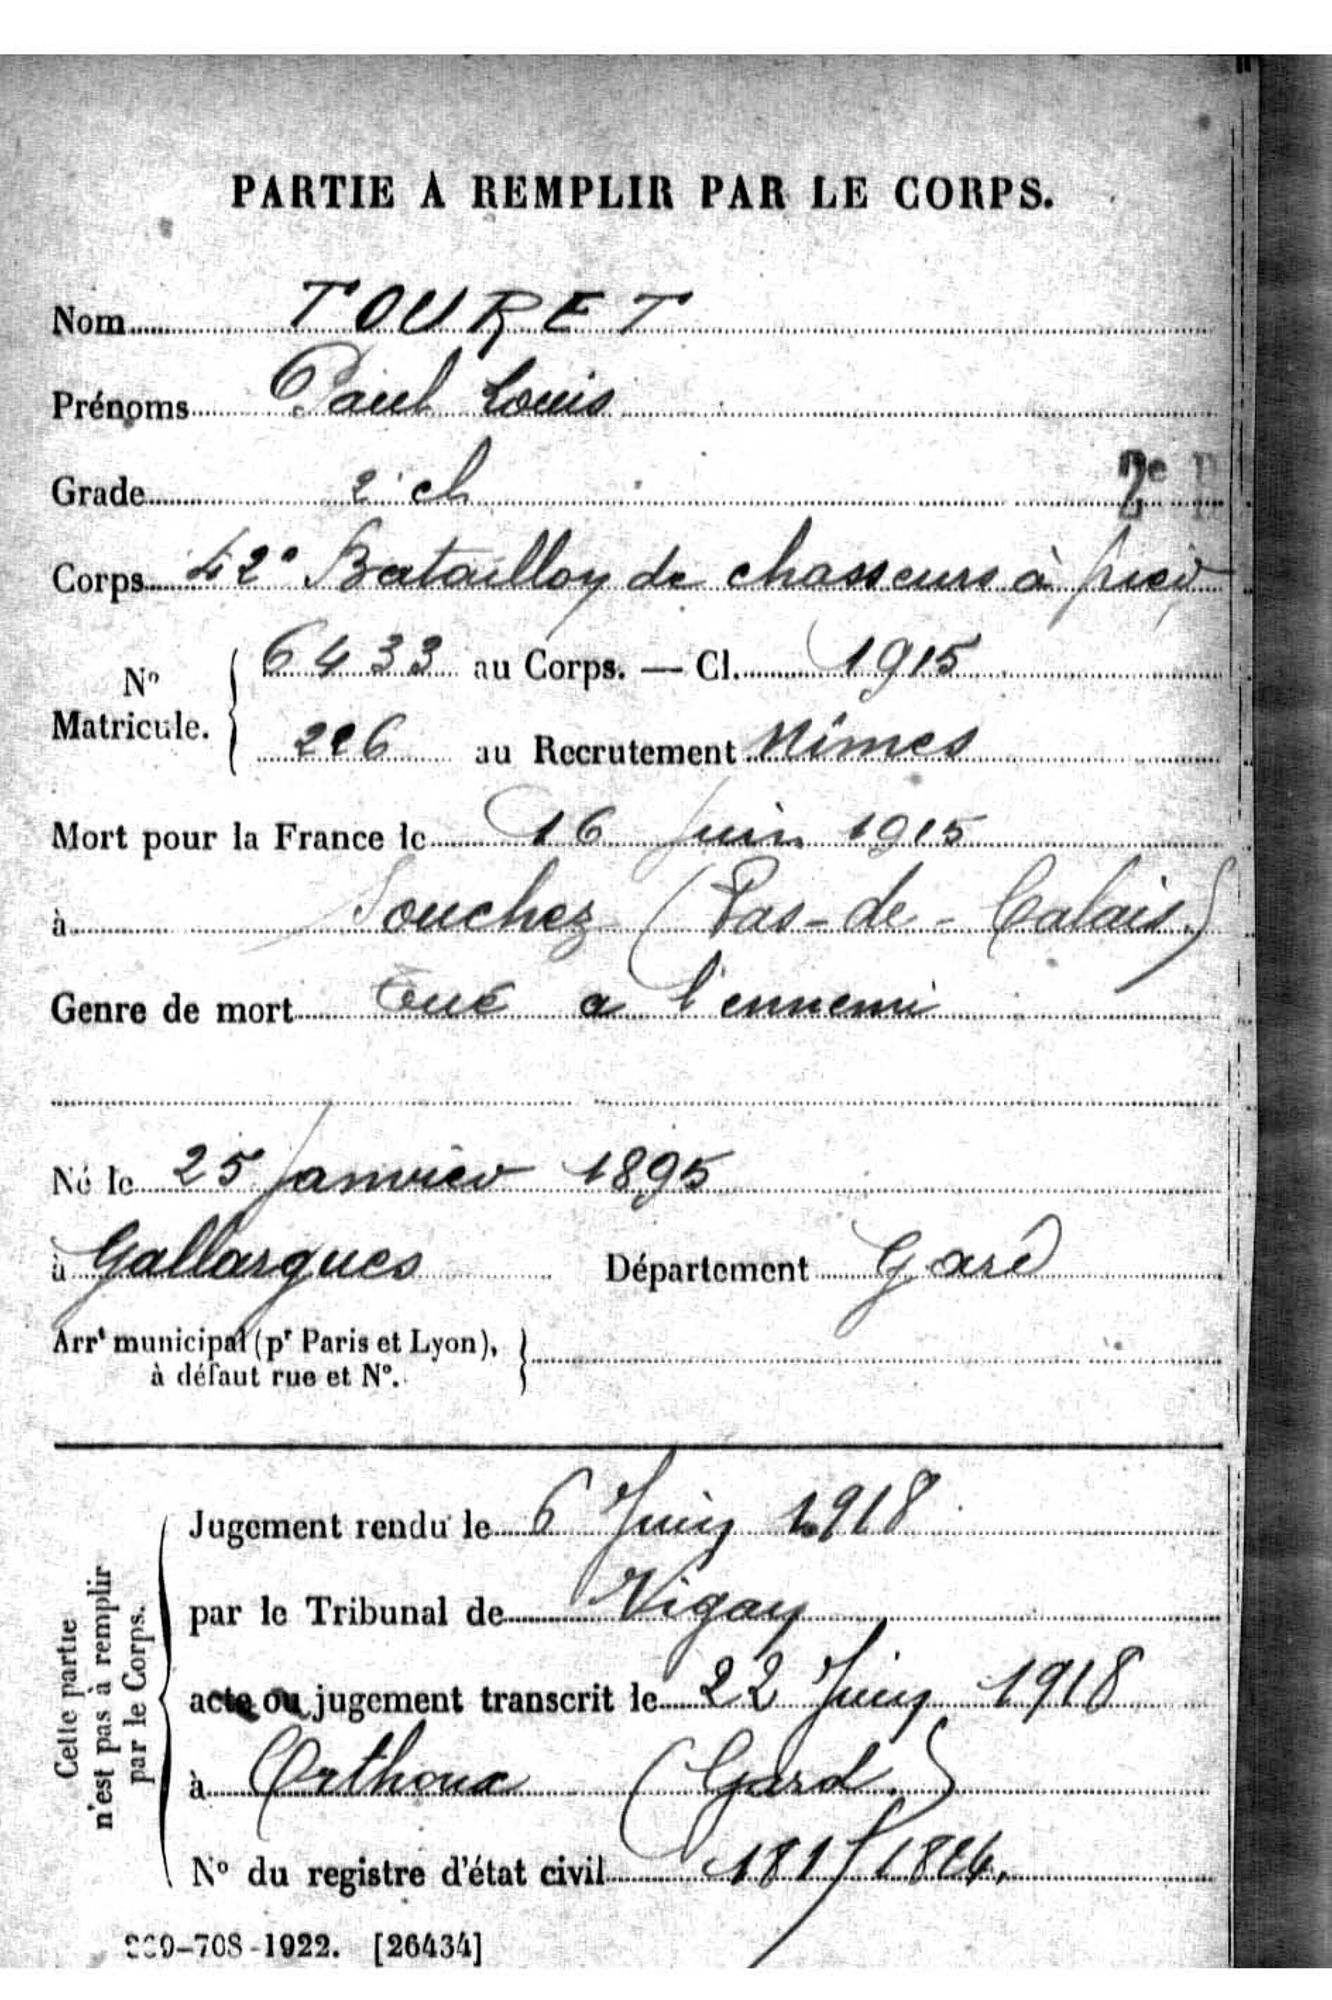 PARTIE A REMPLIR PAR LE CORPS.
Nom TOURET
Prénoms Paul Louis
Grade 2e cl
2e
Corps 42e Bataillon de chasseurs à pied
No Matricule. 6433 au Corps. — Cl. 1915
au Recrutement Nîmes
Mort pour la France le 16 Juin 1915
à Souchez (Pas-de-Calais)
Genre de mort tué a l'ennemi
Né le 25 Janvier 1895
à Gallargues Département Gard
Arrt municipal (pr Paris et Lyon),
à défaut rue et No.
Cette partie
n'est pas à remplir
par le Corps.
Jugement rendu le 6 Juin 1918
par le Tribunal de Vigan
acte ou jugement transcrit le 22 Juin 1918
à Orthoux (Gard.)
No du registre d'état civil
-708-1922. [26434]